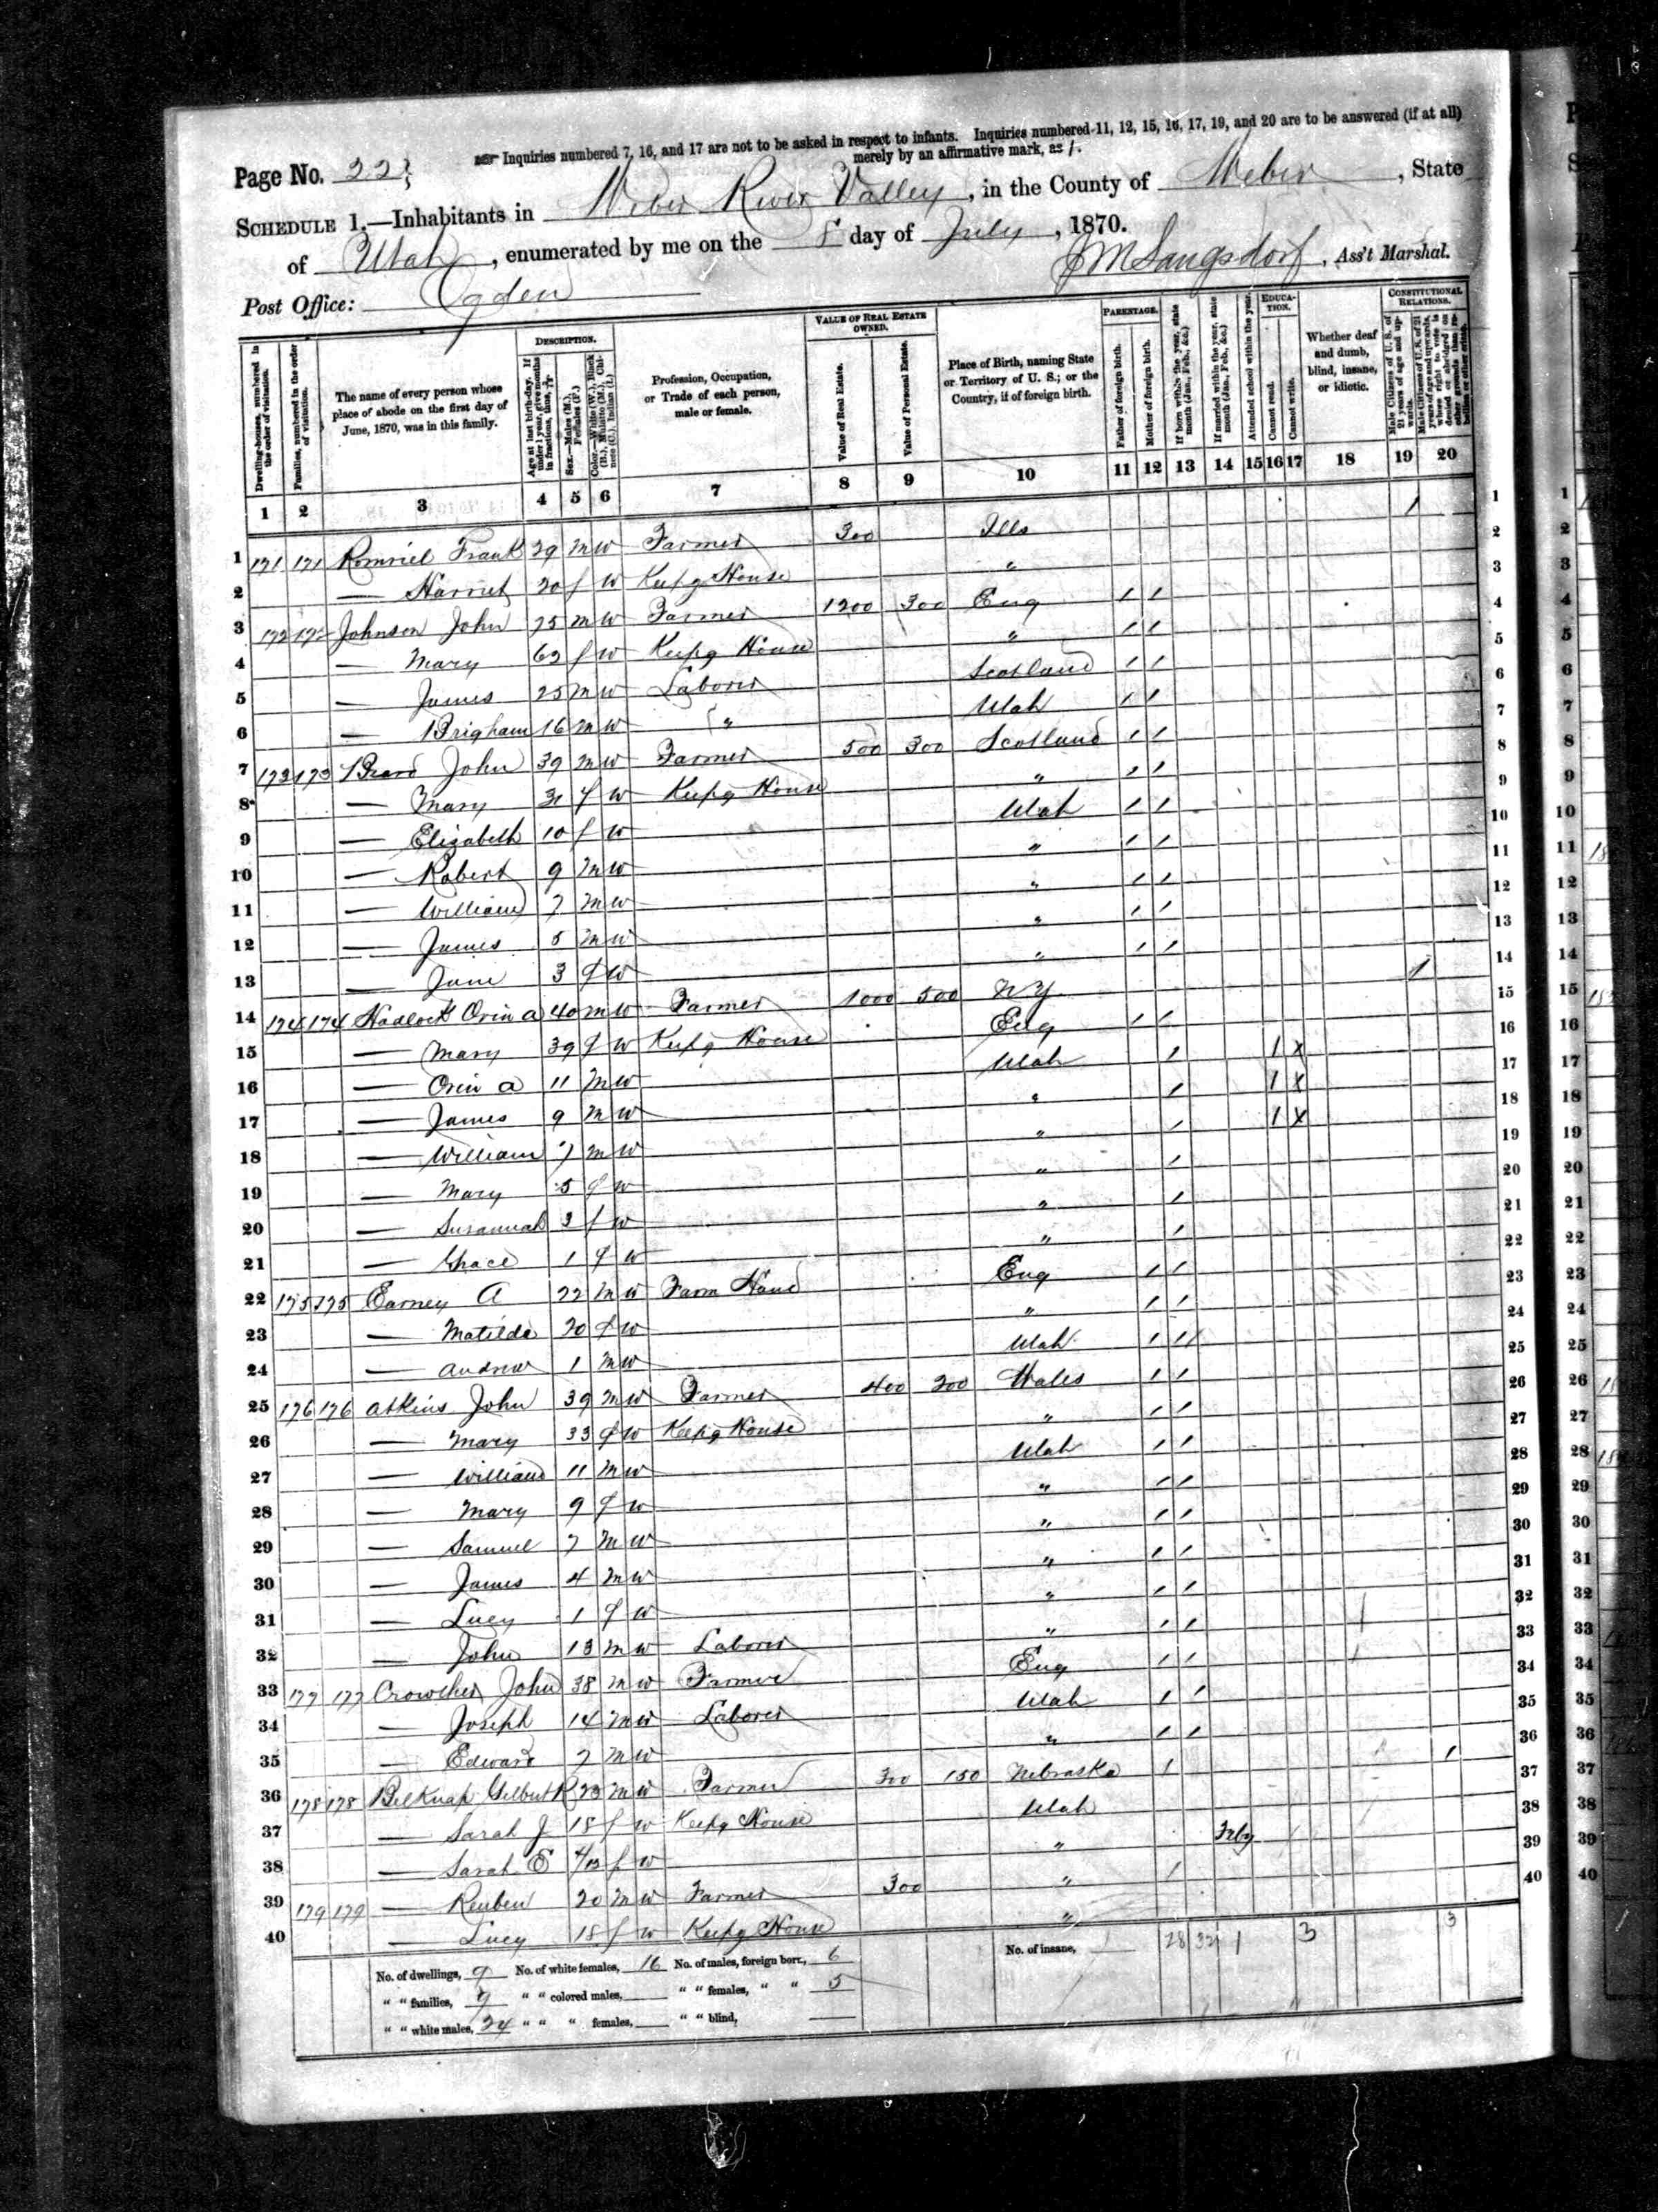 Inquiries numbered 7, 16, and 17 are not to be asked in respect to infants. Inquiries numbered 11, 12, 15, 16, 17, 19, and 20 are to be answered (if at all)
merely by an affirmative mark, as /.
Page No. 223
SCHEDULE 1.—Inhabitants in Weber River Valley, in the County of Weber, State
of Utah, enumerated by me on the 8 day of July, 1870.
Post Office: Ogden
J M Langsdorf, Ass't Marshal.
Dwelling-houses, numbered in the order of visitation.
Families, numbered in the order of visitation.
The name of every person whose place of abode on the first day of June, 1870, was in this family.
DESCRIPTION.
Age at last birth-day. If under 1 year, give months in fractions, thus, 3/12
Sex.—Males (M.), Females (F.)
Color.—White (W.), Black (B.), Mulatto (M.), Chinese (C.), Indian (I.)
Profession, Occupation, or Trade of each person, male or female.
VALUE OF REAL ESTATE OWNED.
Value of Real Estate.
Value of Personal Estate.
Place of Birth, naming State or Territory of U. S.; or the Country, if of foreign birth.
PARENTAGE.
Father of foreign birth.
Mother of foreign birth.
If born within the year, state month (Jan., Feb., &c.)
If married within the year, state month (Jan., Feb., &c.)
Attended school within the year.
EDUCATION.
Cannot read.
Cannot write.
Whether deaf and dumb, blind, insane, or idiotic.
CONSTITUTIONAL RELATIONS.
Male Citizens of U. S. of 21 years of age and upwards.
Male Citizens of U. S. of 21 years of age and upwards, whose right to vote is denied or abridged on other grounds than rebellion or other crime.
1 2 3 4 5 6 7 8 9 10 11 12 13 14 15 16 17 18 19 20
1 171 171 Romriel Frank 29 M W Farmer 300 Ills 1
2 — Harriet 20 f W Keepg House "
3 172 172 Johnson John 75 M W Farmer 1200 300 Eng / /
4 — Mary 62 f W Keepg House " / /
5 — James 25 M W Laborer Scotland / /
6 — Brigham 16 M W " Utah / /
7 173 173 Beard John 39 M W Farmer 500 300 Scotland / /
8 — Mary 31 f W Keepg House " / /
9 — Elizabeth 10 f W Utah / /
10 — Robert 9 M W " / /
11 — William 7 M W " / /
12 — James 5 M W " / /
13 — Jane 3 f W " / /
14 174 174 Hadlock Orin A 40 M W Farmer 1000 500 N Y 1
15 — Mary 39 f W Keepg House Eng / /
16 — Orin A 11 M W Utah / 1 X
17 — James 9 M W " / 1 X
18 — William 7 M W " / 1 X
19 — Mary 5 f W " /
20 — Susannah 3 f W " /
21 — Grace 1 f W " /
22 175 175 Earney A 22 M W Farm Hand Eng / /
23 — Matilda 20 f W " / /
24 — Andrew 1 M W Utah / /
25 176 176 Atkins John 39 M W Farmer 400 200 Wales / /
26 — Mary 33 f W Keepg House " / /
27 — William 11 M W Utah / /
28 — Mary 9 f W " / /
29 — Samuel 7 M W " / /
30 — James 4 M W " / /
31 — Lucy 1 f W " / /
32 — John 13 M W Laborer " / /
33 177 177 Crowther John 38 M W Farmer Eng / /
34 — Joseph 14 M W Laborer Utah / /
35 — Edward 7 M W " / /
36 178 178 Belknap Gilbert R 23 M W Farmer 300 150 Nebraska / 1
37 — Sarah J 18 f W Keepg House Utah
38 — Sarah E 4/12 f W " Feby
39 179 179 — Reuben 20 M W Farmer 300 " /
40 — Lucy 18 f W Keepg House "
No. of dwellings, 9 No. of white females, 16 No. of males, foreign born, 6 No. of insane, 28 32 1 3 3
" " families, 9 " " colored males, " " females, " " 5
" " white males, 24 " " " females, " " blind,